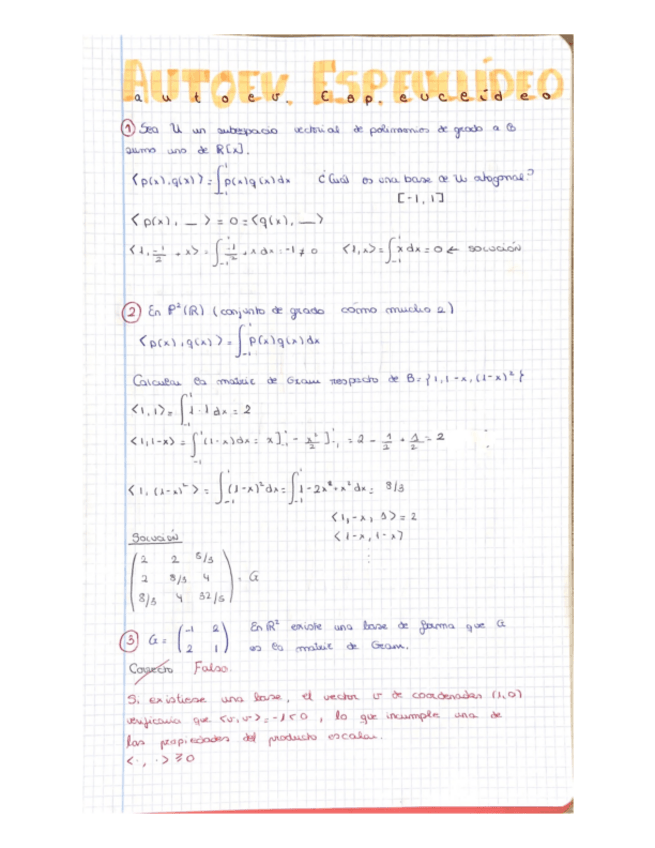 AUTOEV. ESP EUCLÍDEO
autoev. Esp. euclídeo
① Sea U un subespacio vectorial de polinomios de grado a lo
sumo uno de R[x].
<p(x), q(x)> = ∫₋₁¹ p(x)q(x)dx ¿Cuál es una base de U ortogonal?
[-1, 1]
<p(x), _> = 0 = <q(x), _>
<1, -1/2 + x> = ∫₋₁¹ -1/2 + x dx = -1 ≠ 0 <1, x> = ∫₋₁¹ x dx = 0 ← solución
② En P²(R) (conjunto de grado como mucho 2)
<p(x), q(x)> = ∫₋₁¹ p(x)q(x)dx
Calcular la matriz de Gram respecto de B = {1, 1-x, (1-x)²}
<1, 1> = ∫₋₁¹ 1·1 dx = 2
<1, 1-x> = ∫₋₁¹ (1-x)dx = x]₋₁¹ - x²/2]₋₁¹ = 2 - 1/2 + 1/2 = 2
<1, (1-x)²> = ∫₋₁¹ (1-x)² dx = ∫₋₁¹ 1-2x+x² dx = 8/3
<1-x, 1> = 2
<1-x, 1-x>
⋮
Solución
(2 2 8/3
2 8/3 4 = G
8/3 4 32/5)
③ G = (-1 2 En R² existe una base de forma que G
2 1) es la matriz de Gram.
Correcto Falso.
Si existiese una base, el vector v de coordenadas (1,0)
verificaría que <v,v> = -1 < 0, lo que incumple una de
las propiedades del producto escalar.
<·, ·> ≥ 0